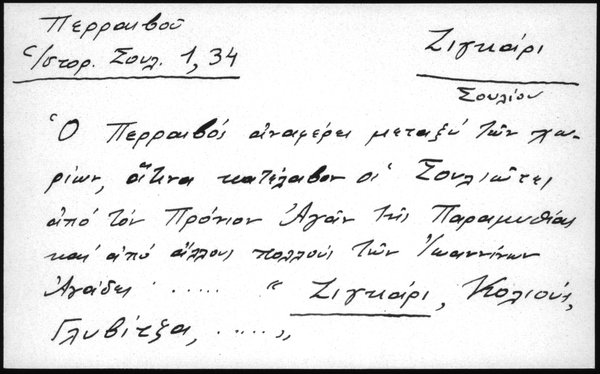 Περραιβοῦ
Ἱστορ. Σουλ. 1, 34
Ζιγκάρι
Σουλίου
Ὁ Περραιβός ἀναφέρει μεταξύ τῶν χω-
ρίων, ἅτινα κατέλαβον οἱ Σουλιῶτες
ἀπό τόν Πρόνιον Ἀγᾶν τῆς Παραμυθίας
καί ἀπό ἄλλους πολλούς τῶν Ἰωαννίνων
Ἀγάδες ..... " Ζιγκάρι, Κολιούς,
Γλυβίτζα, ..... "